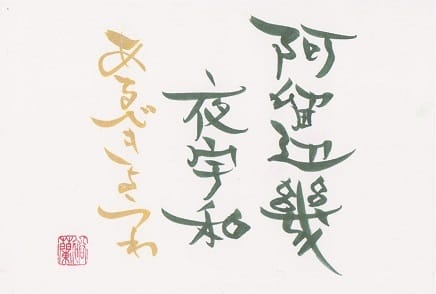 阿留辺幾
夜宇和
あるべきようわ